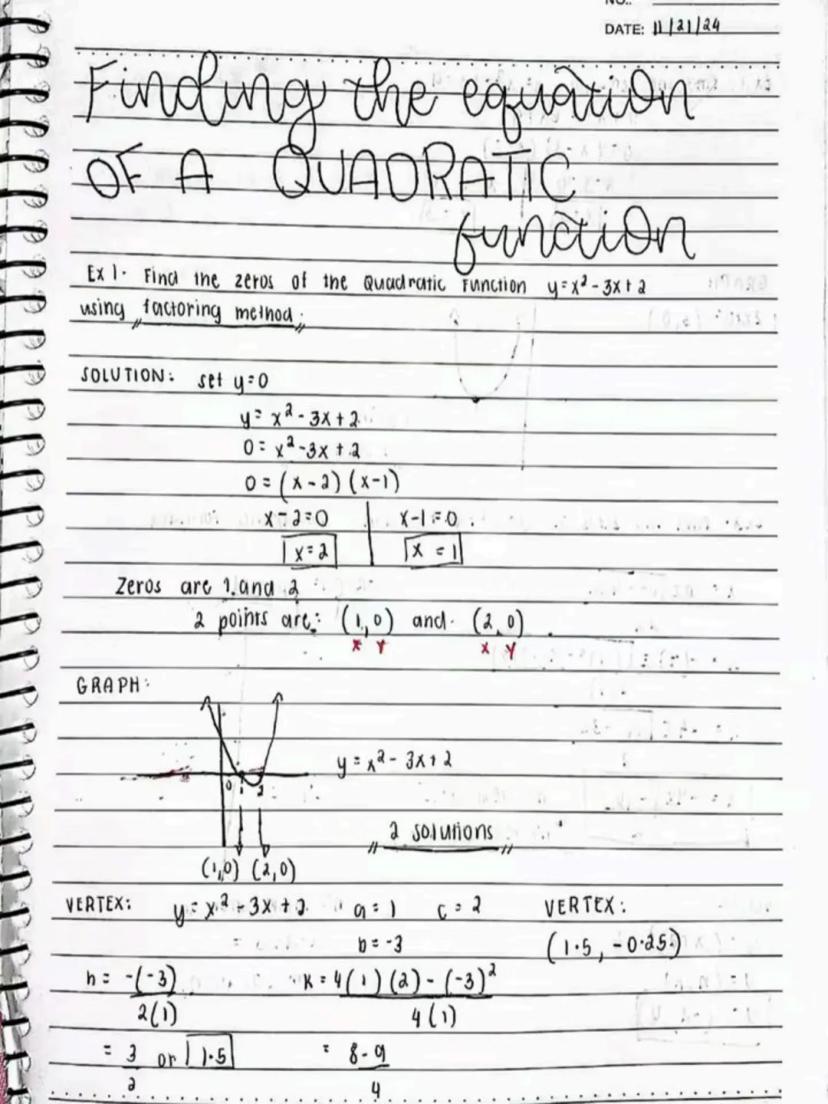 NO.:
DATE: 11/21/24
Finding the equation
OF A QUADRATIC
function
Ex 1. Find the zeros of the Quadratic Function y=x²-3x+2
using factoring method:
SOLUTION: set y=0
y=x²-3x+2
0=x²-3x+2
0=(x-2)(x-1)
x-2=0 x-1=0
x=2 x=1
Zeros are 1 and 2
2 points are: (1,0) and (2,0)
x y x y
GRAPH:
y=x²-3x+2
0 1 2
2 solutions
(1,0) (2,0)
VERTEX: y=x²-3x+2 a=1 c=2 VERTEX:
b=-3 (1.5, -0.25)
h= -(-3) K= 4(1)(2)-(-3)²
2(1) 4(1)
= 3 or 1.5 = 8-9
2 4